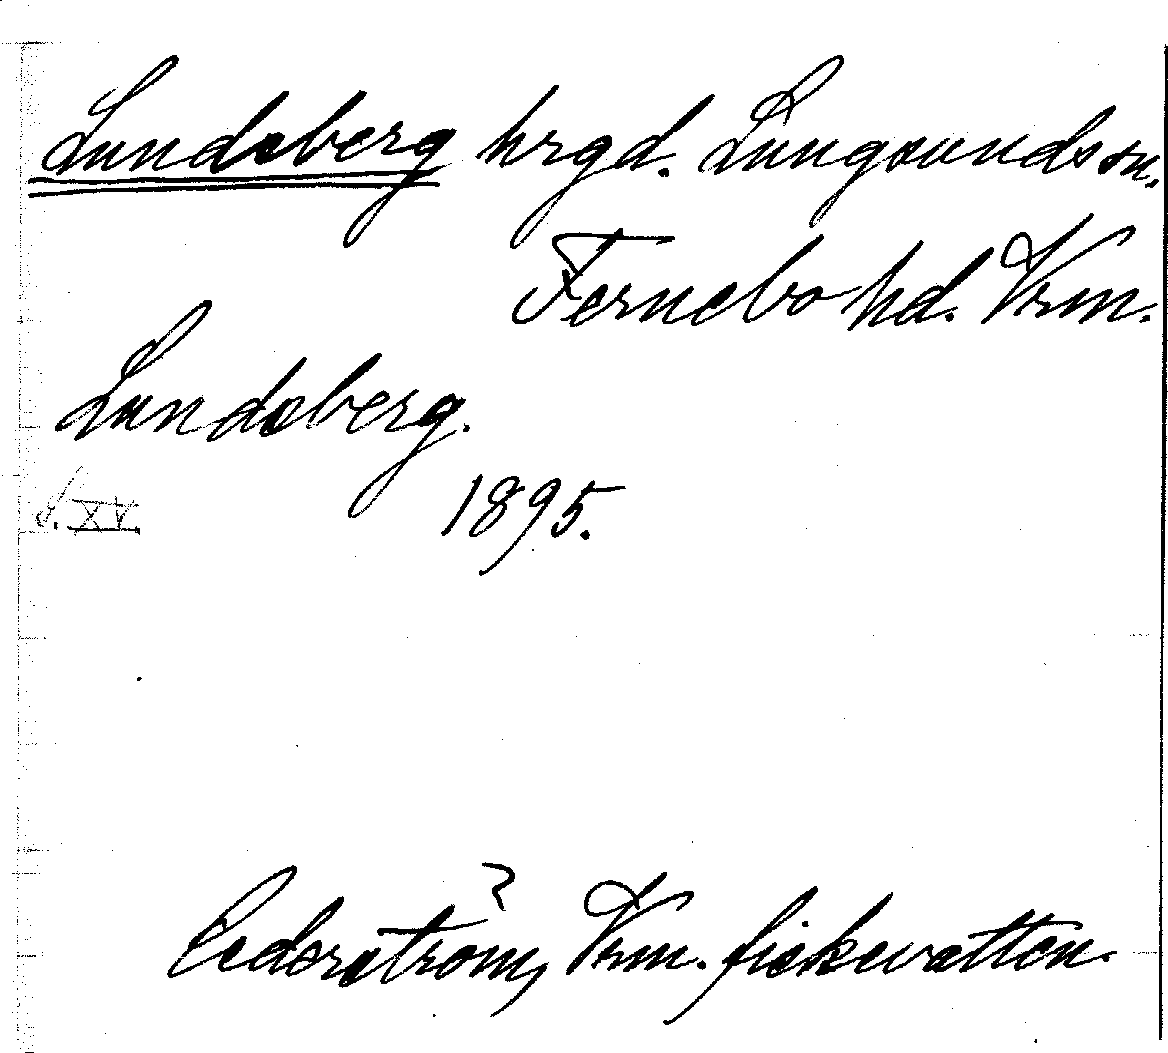 Lundsberg hrgd. Lungsundssn.
Fernebo hd. Vrm.
Lundsberg.
1895.
S. XV.
Cederström, Vrm. fiskevatten.